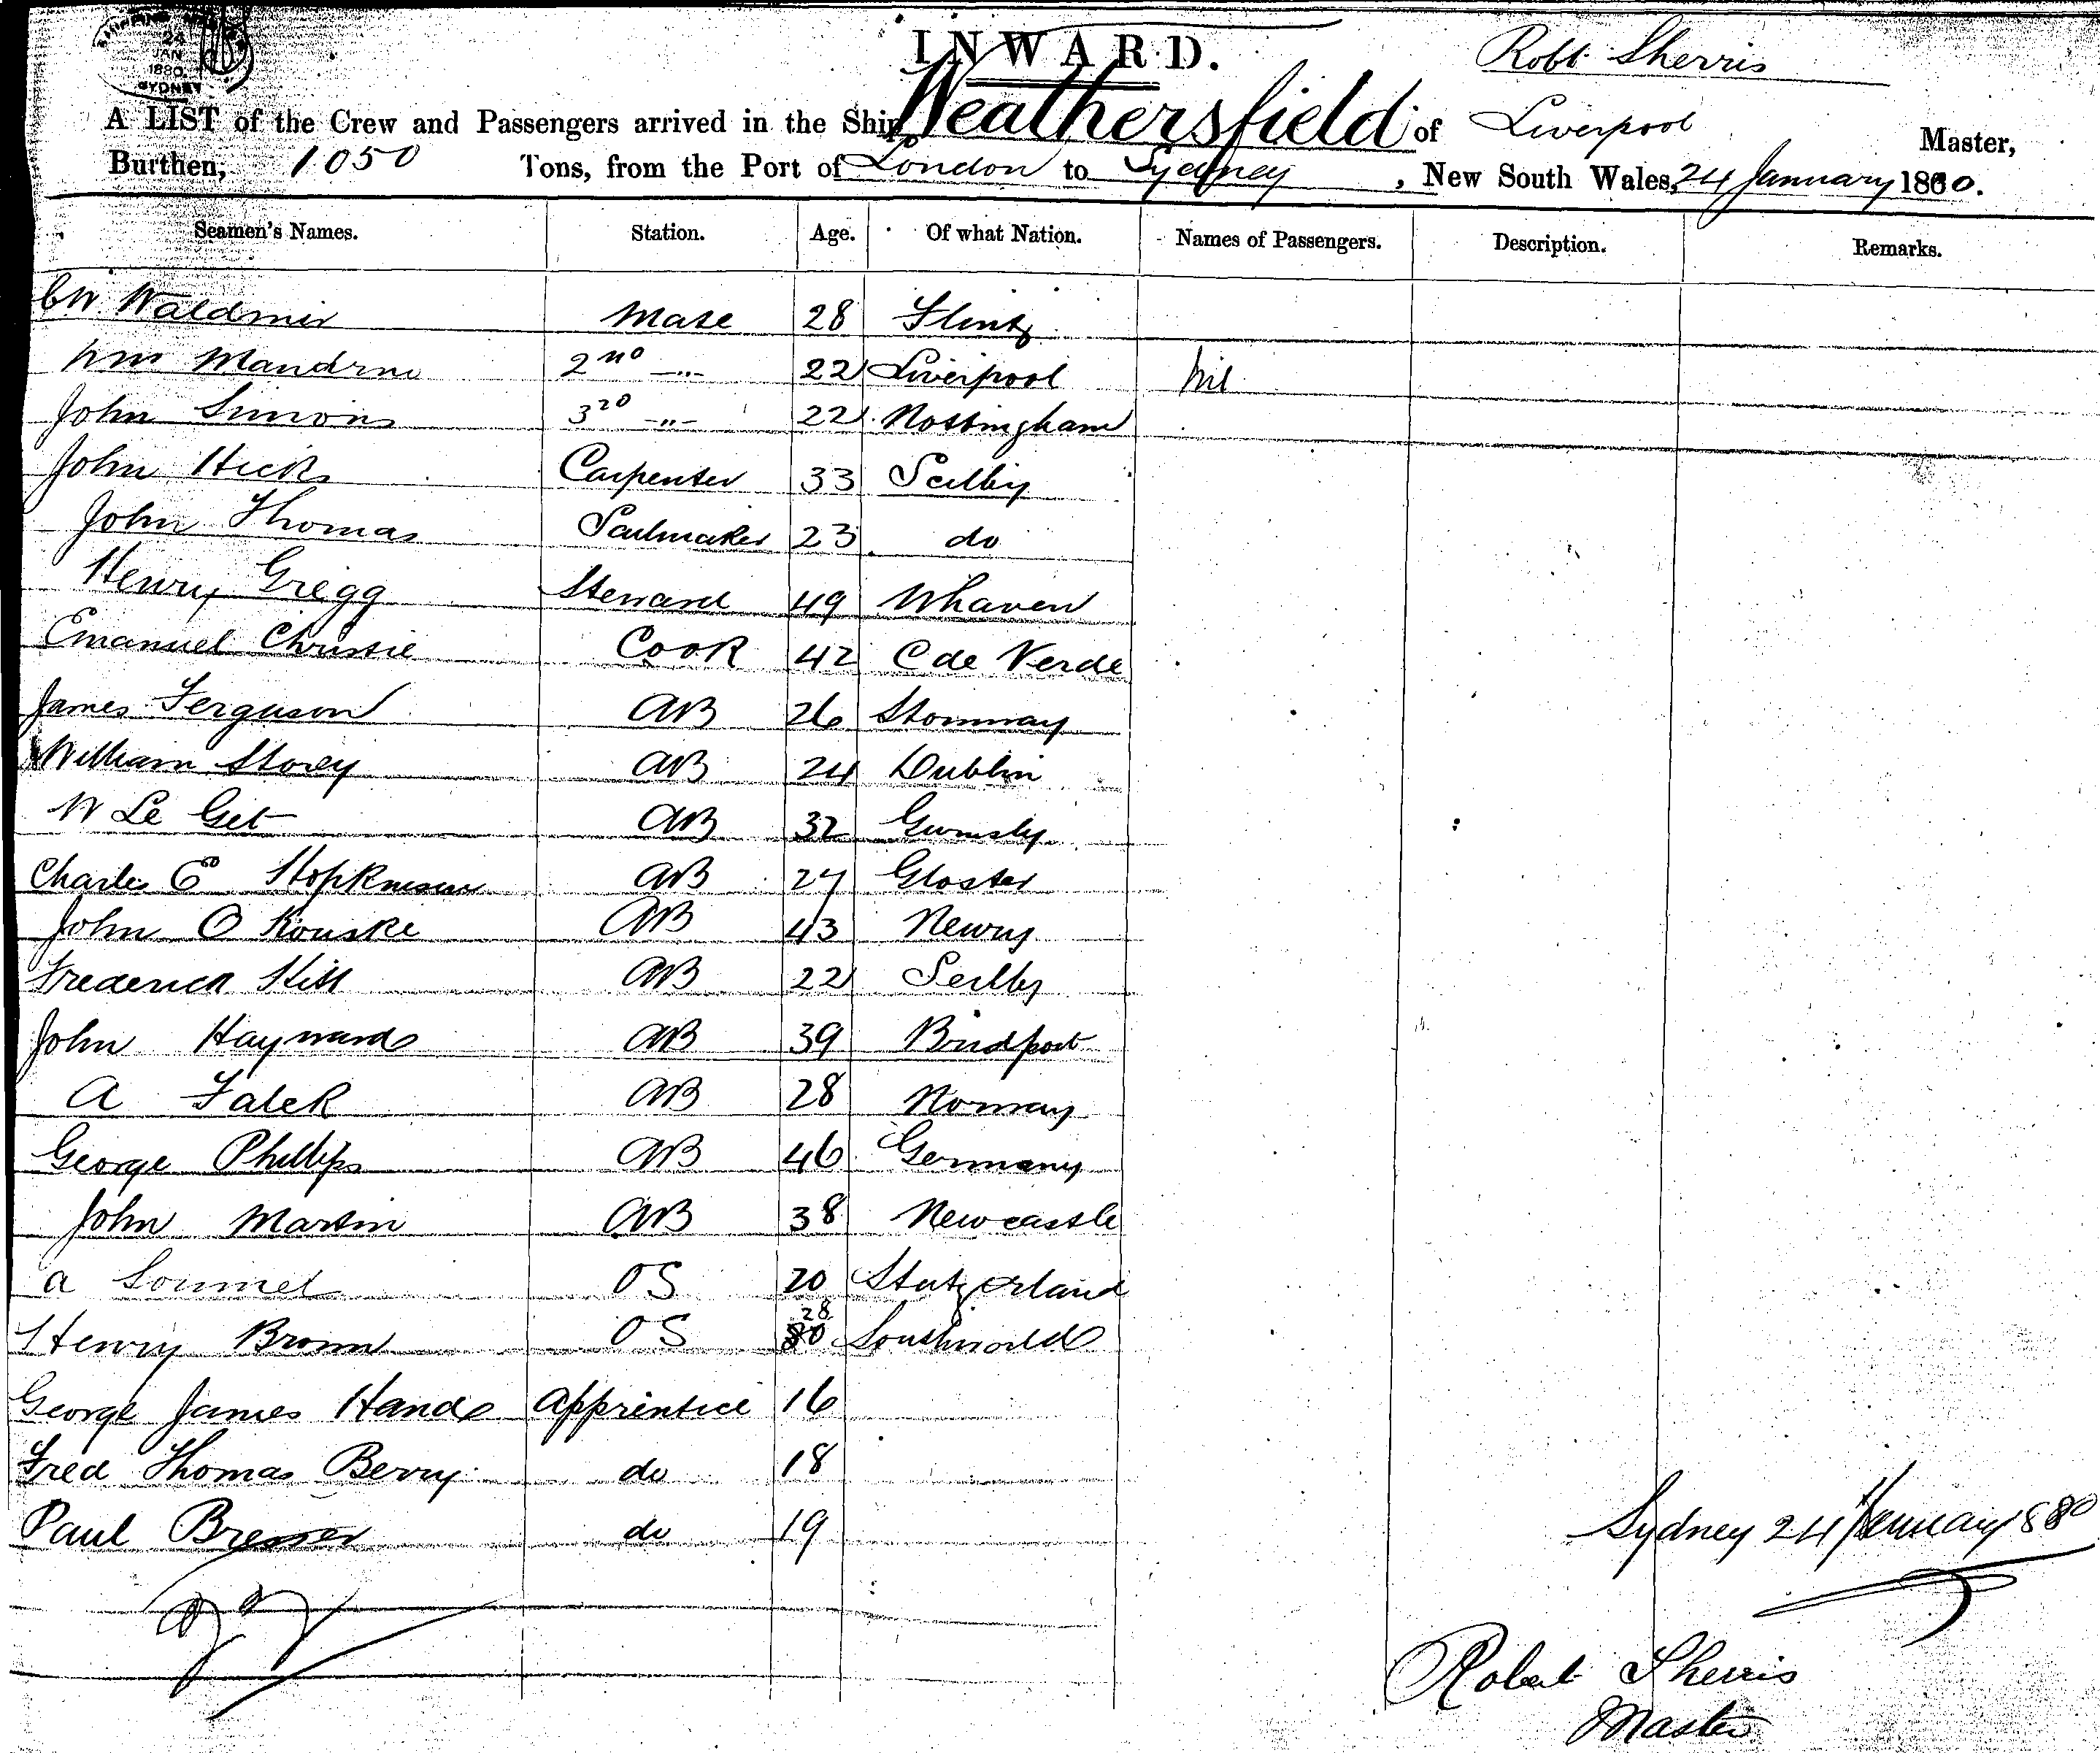 24
JAN
1880
SYDNEY
INWARD.
Robt Sherris
A LIST of the Crew and Passengers arrived in the Ship Weathersfield of Liverpool Master,
Burthen, 1050 Tons, from the Port of London to Sydney, New South Wales, 24 January 1880.
Seamen's Names. Station. Age. Of what Nation. Names of Passengers. Description. Remarks.
CW Waldmir Mate 28 Flint
Wm 2nd -"- 22 Liverpool Nil
John Simons 3rd -"- 22 Nottingham
John Hicks Carpenter 33 Scilly
John Thomas Sailmaker 23 do
Henry Gregg Steward 49 Whaven
Emanuel Christie Cook 42 C de Verde
James Ferguson AB 26 Stornway
William Storey AB 24 Dublin
W Le Get AB 32
Charles E Hopkinson AB 27 Gloster
John O Rourke AB 43 Newry
Frederick Hill AB 22 Scilly
John Hayward AB 39 Bridport
A Falck AB 28 Norway
George Phillips AB 46 Germany
John Martin AB 38 Newcastle
A OS 20
Henry Brown OS 28 Southwold
George James Hands Apprentice 16
Fred Thomas Berry do 18
Paul do 19
Sydney 24 January 1880
Robert Sherris
Master